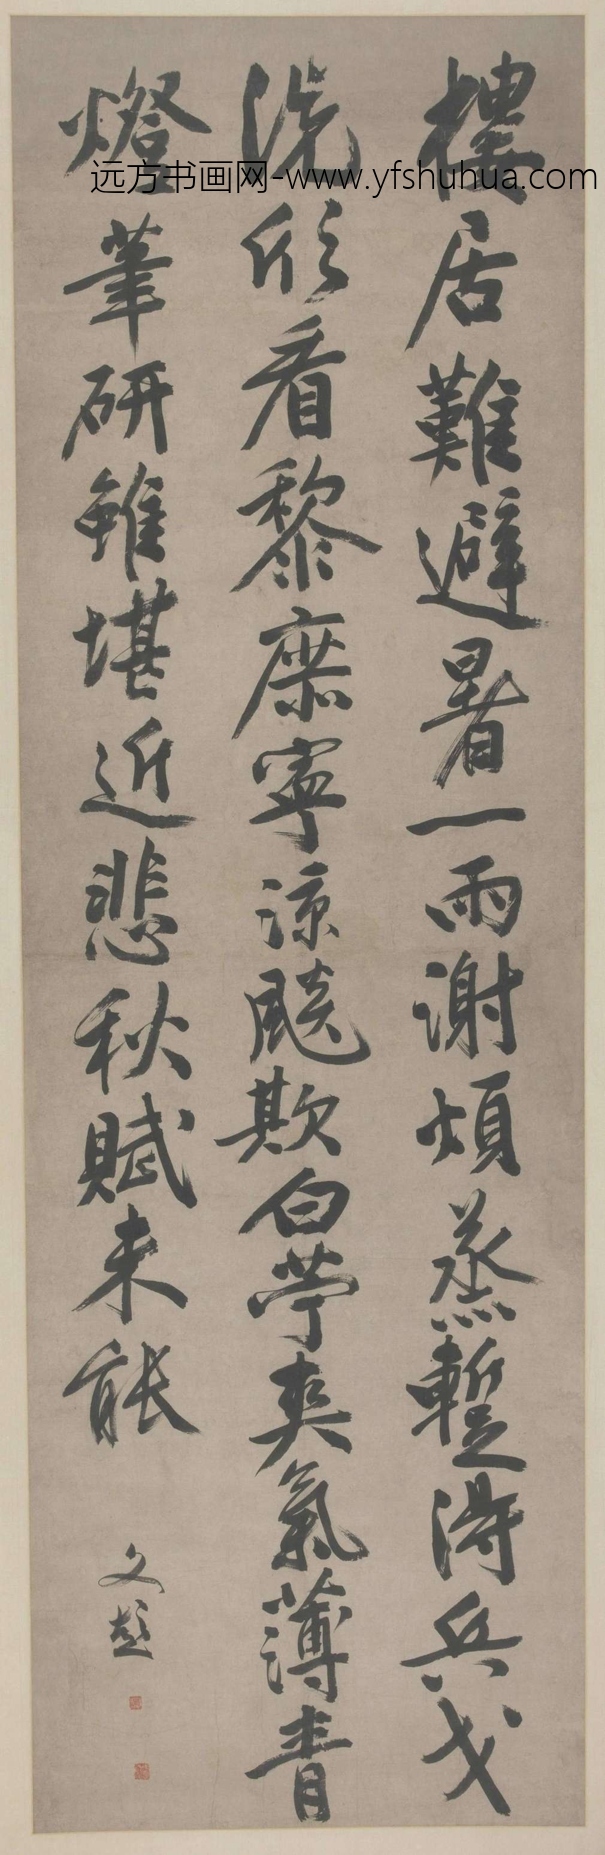 远方书画网-www.yfshuhua.com
樓居難避暑一雨謝煩蒸蹔得兵戈
洗欣看黎庶寧涼飚欺白苧爽氣薄青
燈筆研雖堪近悲秋賦未能
文彭